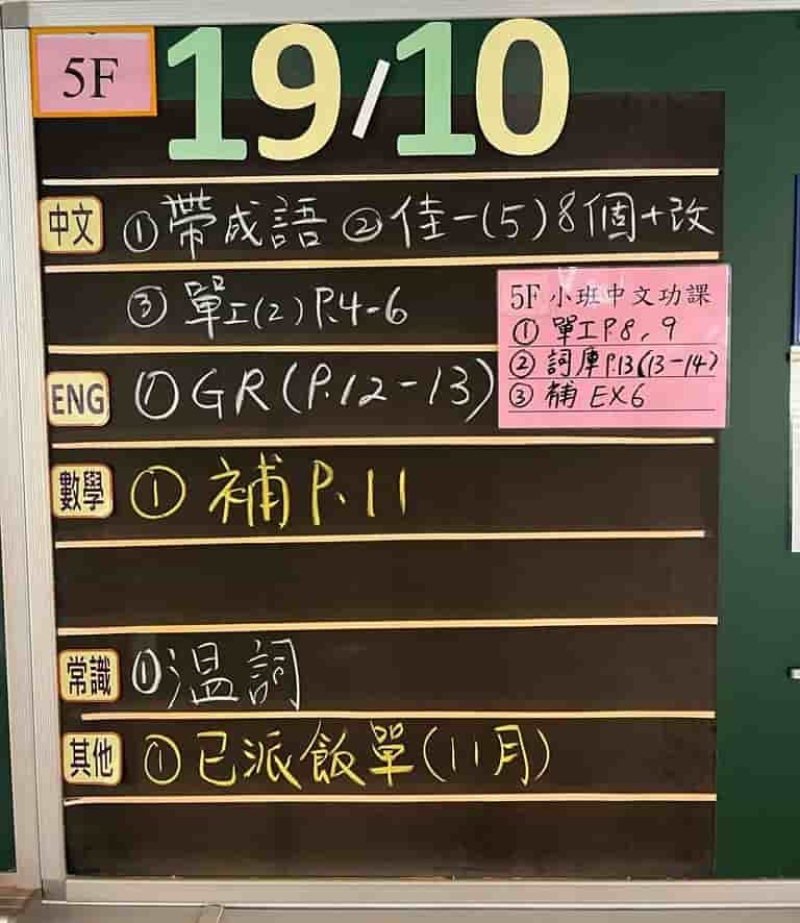 5F
19/10
中文 ①帶成語 ②佳一(5)8個+改
③單工(2)P.4-6
5F 小班中文功課
① 單工P.8，9
② 詞庫P.13(13-14)
③ 補 EX6
ENG ①GR(P.12-13)
數學 ① 補P.11
常識 ①温詞
其他 ①已派飯單(11月)